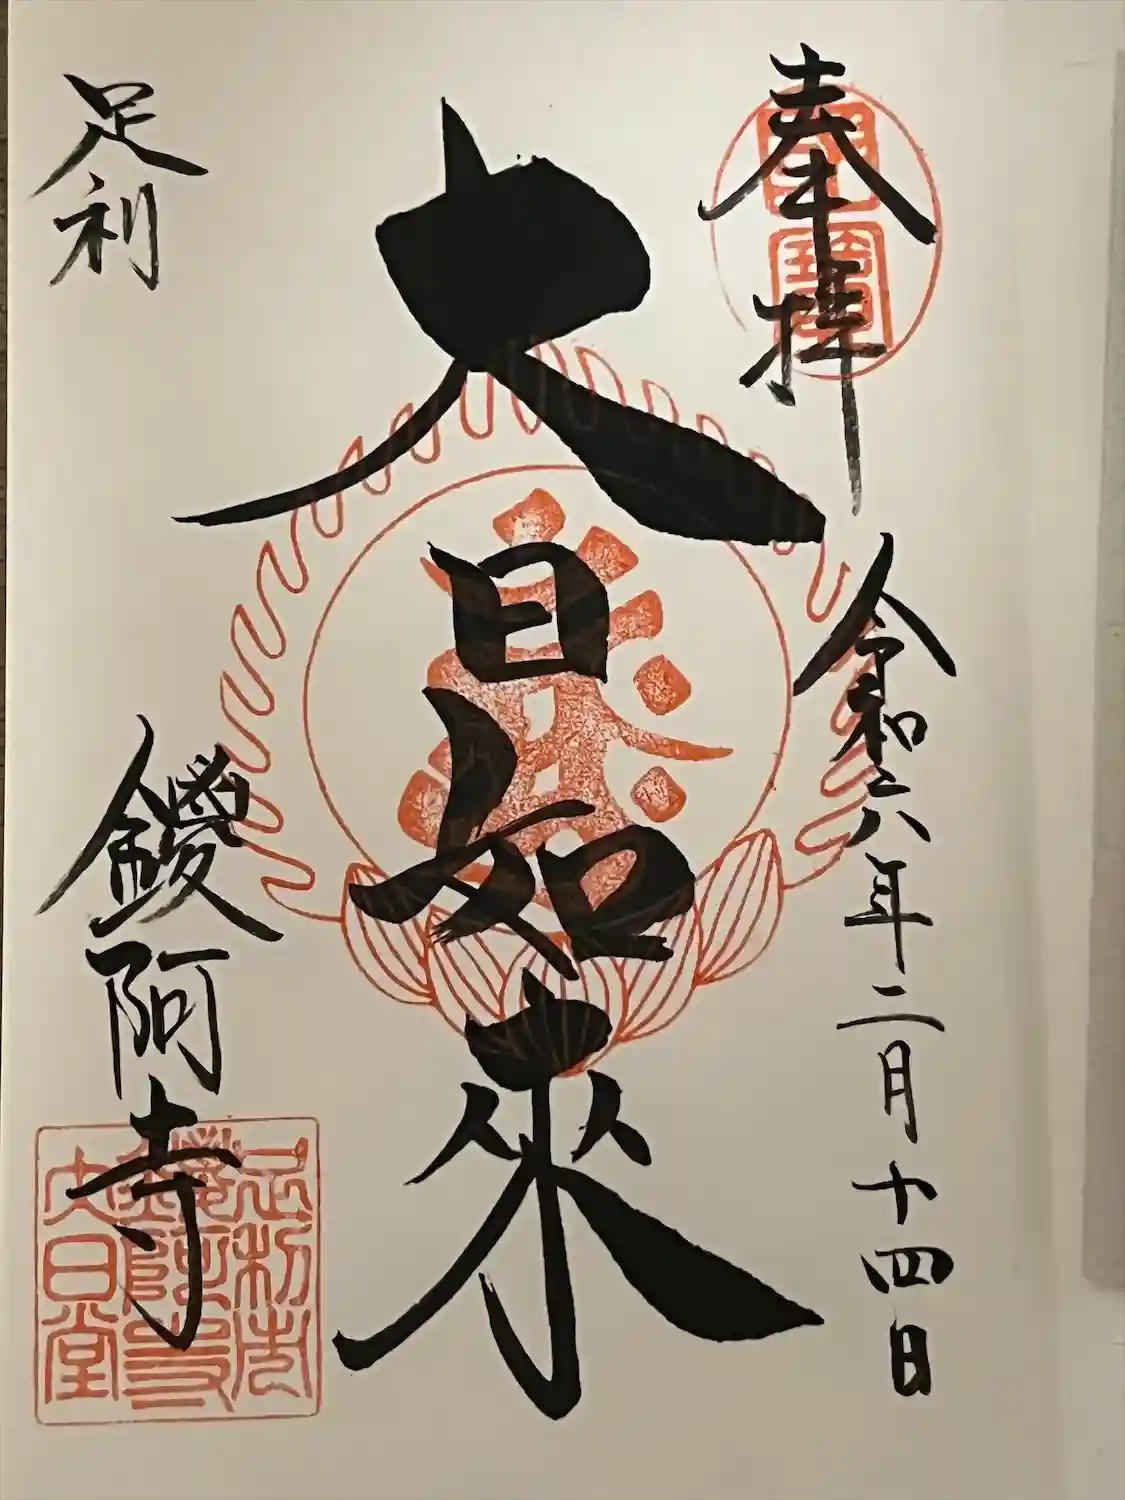 奉拝
令和六年二月十四日
大日如来
足利
鑁阿寺
足利市
鑁阿寺
大日堂